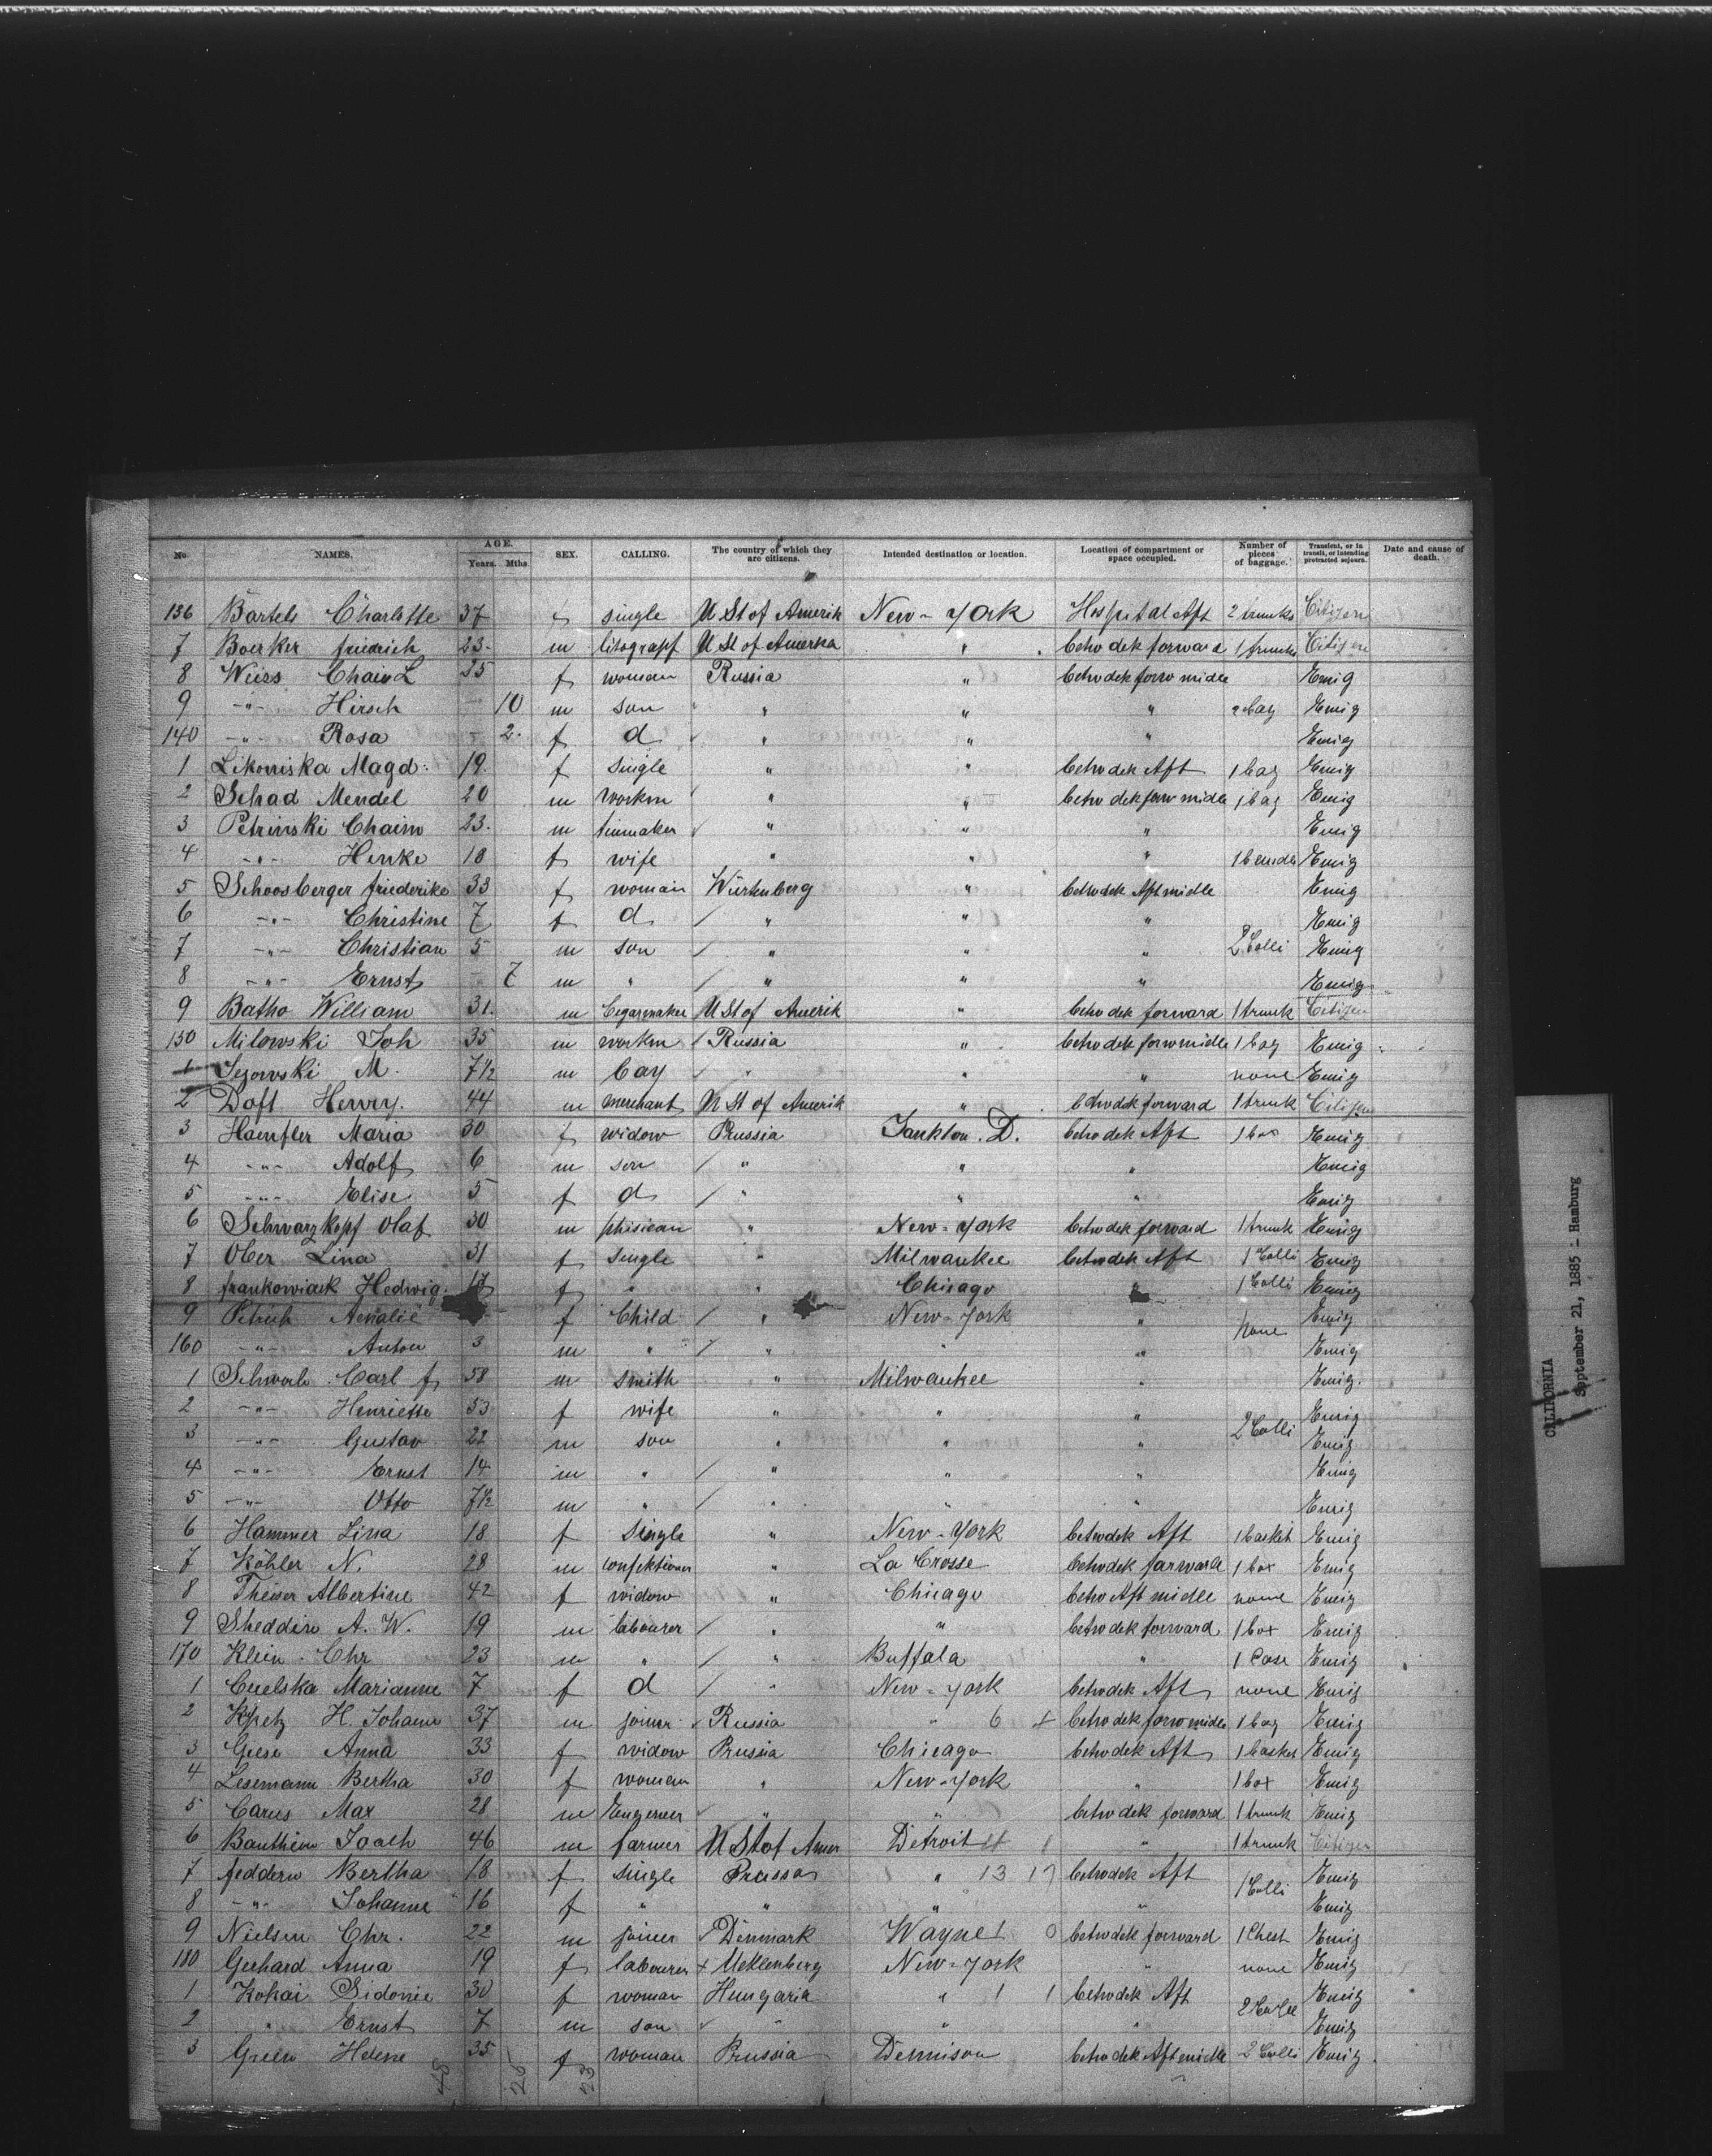 No. NAMES. AGE. Years. Mths. SEX. CALLING. The country of which they are citizens. Intended destination or location. Location of compartment or space occupied. Number of pieces of baggage. Transient, or in transit, or intending protracted sojourn. Date and cause of death.
136 Bartels Charlotte 37 f single U St of Amerik New-York Hospital Aft 2 trunks Citizen
7 Boerker friedrich 23. m litograpf U St of Amerka " betwdek forward 1 trunk Citizen
8 Weiss L 25 f woman Russia " betwdek forw midle Emig
9 -"- Hirsch 10 m son " " " 2 bag Emig
140 -"- Rosa 2. f d " " " Emig
1 Magd: 19. f single " " betwdek Aft 1 bag Emig
2 Schad Mendel 20 m workm " " betwdek forw midle 1 bag Emig
3 Petrinski Chaim 23. m " " " Emig
4 -"- Henke 18 f wife " " " Emig
5 Schoosberger friederike 33 f woman Würtenberg " betwdek Aft midle Emig
6 -"- Christine 7 f d " " " Emig
7 -"- Christian 5 m son " " " 2 Colli Emig
8 -"- Ernst 7 m " " " " Emig
9 Batho William 31. m Cegarmaker U St of Amerik " betwdek forward 1 trunk Citizen
150 Milowski Joh 35 m workm Russia " betwdek forw midle 1 bag Emig
1 M. 7½ m boy " " " none Emig
2 Doft Henry. 44 m merchant U St of Amerik " betwdek forward 1 trunk Citizen
3 Haenfler Maria 30 f widow Prussia Jankton. D. betwdek Aft 1 box Emig
4 -"- Adolf 6 m son " " " Emig
5 -"- Elise 5 f d " " " Emig
6 Schwarzkopf Olaf 30 m phisican " New-York betwdek forward 1 trunk Emig
7 Ober Lina 31 f single " Milwaukee betwdek Aft 1 Colli Emig
8 frankowiack Hedwig. 17 f " " Chicago " 1 Colli Emig
9 Petrich Amalie f Child " New-York " none Emig
160 -"- Anton 3 m " " " " Emig
1 Carl f 58 m smith " Milwaukee " Emig.
2 -"- Henriette 53 f wife " " " 2 Colli Emig
3 -"- Gustav 22 m son " " " Emig
4 -"- Ernst 14 m " " " " Emig
5 -"- Otto 7½ m " " " " Emig
6 Hammer Lina 18 f single " New-York betwdek Aft 1 basket Emig
7 Köhler N. 28 m confiktioner " La Crosse betwdek farward 1 box Emig
8 Albertine 42 f widow " Chicago betw Aft midle none Emig
9 Sheddin A. W. 19 m labourer " " betwdek forward 1 box Emig
170 Klein Chr 23 m " " Buffala " 1 Case Emig
1 Cuelska Marianne 7 f d " New-York betwdek Aft none Emig
2 H. Johann 37 m joiner Russia " 6 + betwdek forw midle 1 bag Emig
3 Giese Anna 33 f widow Prussia Chicago betwdek Aft 1 basket Emig
4 Lesemann Bertha 30 f woman " New-York " 1 box Emig
5 Carus Max 28 m Engeneer " " betwdek forward 1 trunk Emig
6 46 m farmer U St of Amer Detroit " 1 trunk Citizen
7 feddern Bertha 18 f single Prussa " 13 17 betwdek Aft 1 Colli Emig
8 -"- Johanne 16 f " " " " Emig
9 Nielsen Chr. 22 m joiner Denmark Wayne 0 betwdek forward 1 Chest Emig
180 Gerhard Anna 19 f labourer + Meklenberg New-York " none Emig
1 Kokai Sidonie 30 f woman Hungaria " 1 1 betwdek Aft Emig
2 " Ernst 7 m son " " " Emig
3 Green Helene 35 f woman Prussia Dennison betwdek Aft midle 2 Colli Emig.
CALIFORNIA
September 21, 1885 - Hamburg